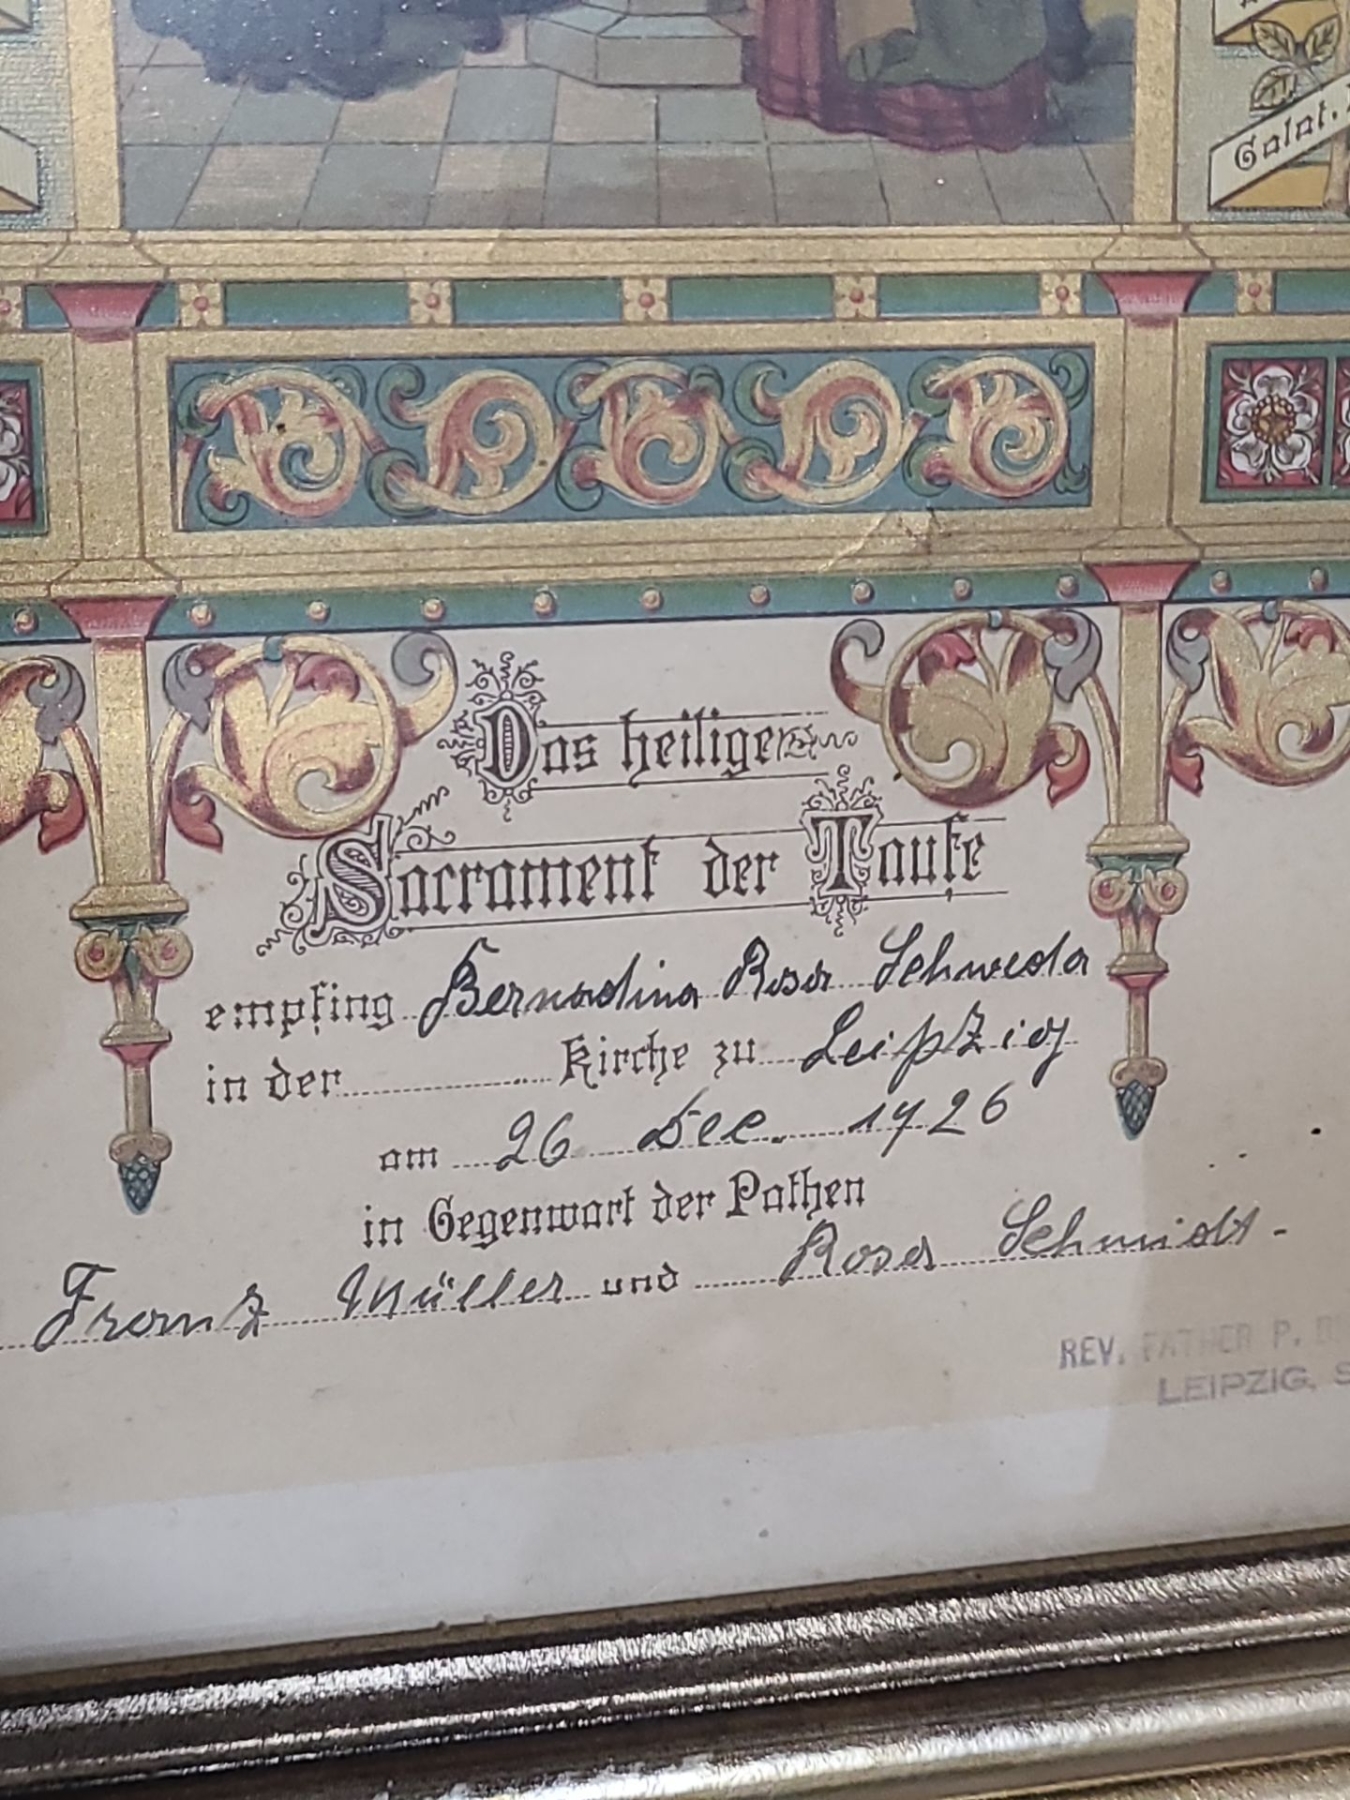 Galat.
Das heilige
Sacrament der Taufe
empfing Bernadina Rosa Schweda
in der Kirche zu Leipzig
am 26 Dec. 1926
in Gegenwart der Pathen
Franz Müller und Rosa Schmidt.
REV. FATHER P.
LEIPZIG, S